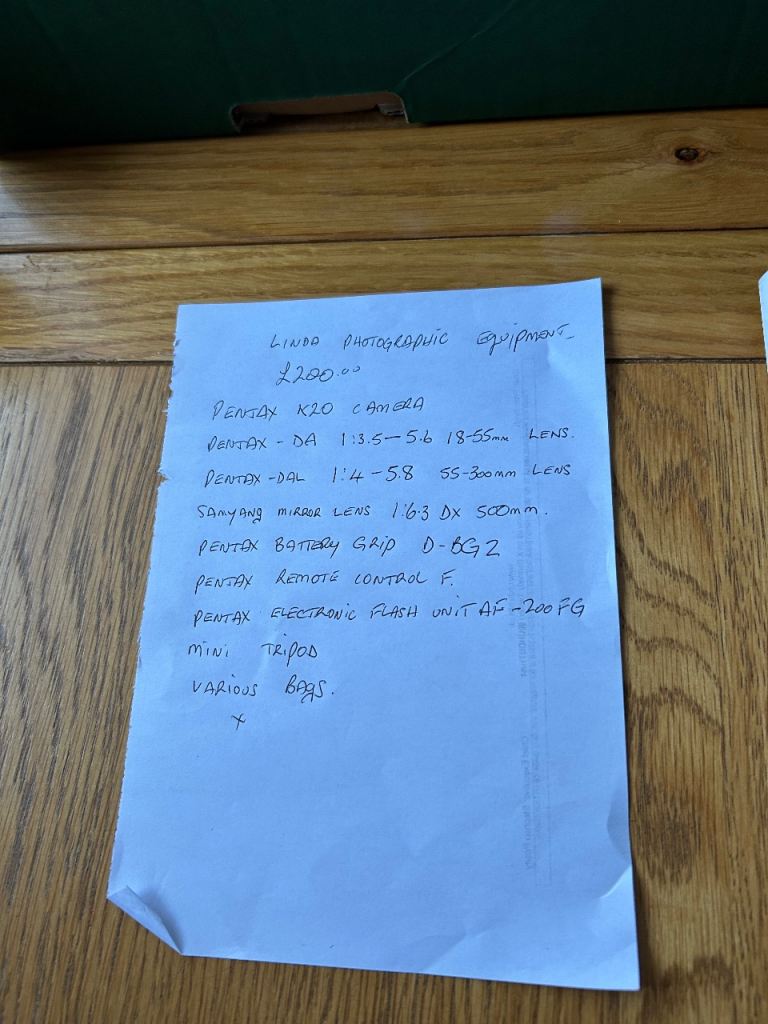 LINDA PHOTOGRAPHIC EQUIPMENT
£200.00
PENTAX K20 CAMERA
PENTAX - DA 1:3.5-5.6 18-55mm LENS.
PENTAX -DAL 1:4 -5.8 55-300mm LENS
SAMYANG MIRROR LENS 1:6.3 DX 500mm.
PENTAX BATTERY GRIP D-BG2
PENTAX REMOTE CONTROL F.
PENTAX ELECTRONIC FLASH UNIT AF-200FG
MINI TRIPOD
VARIOUS BAGS.
x